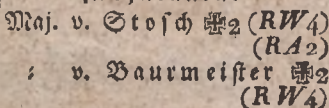 Maj. v. Stosch ✠2 (RW4)
(RA2)
: v. Baurmeister ✠2
(RW4)